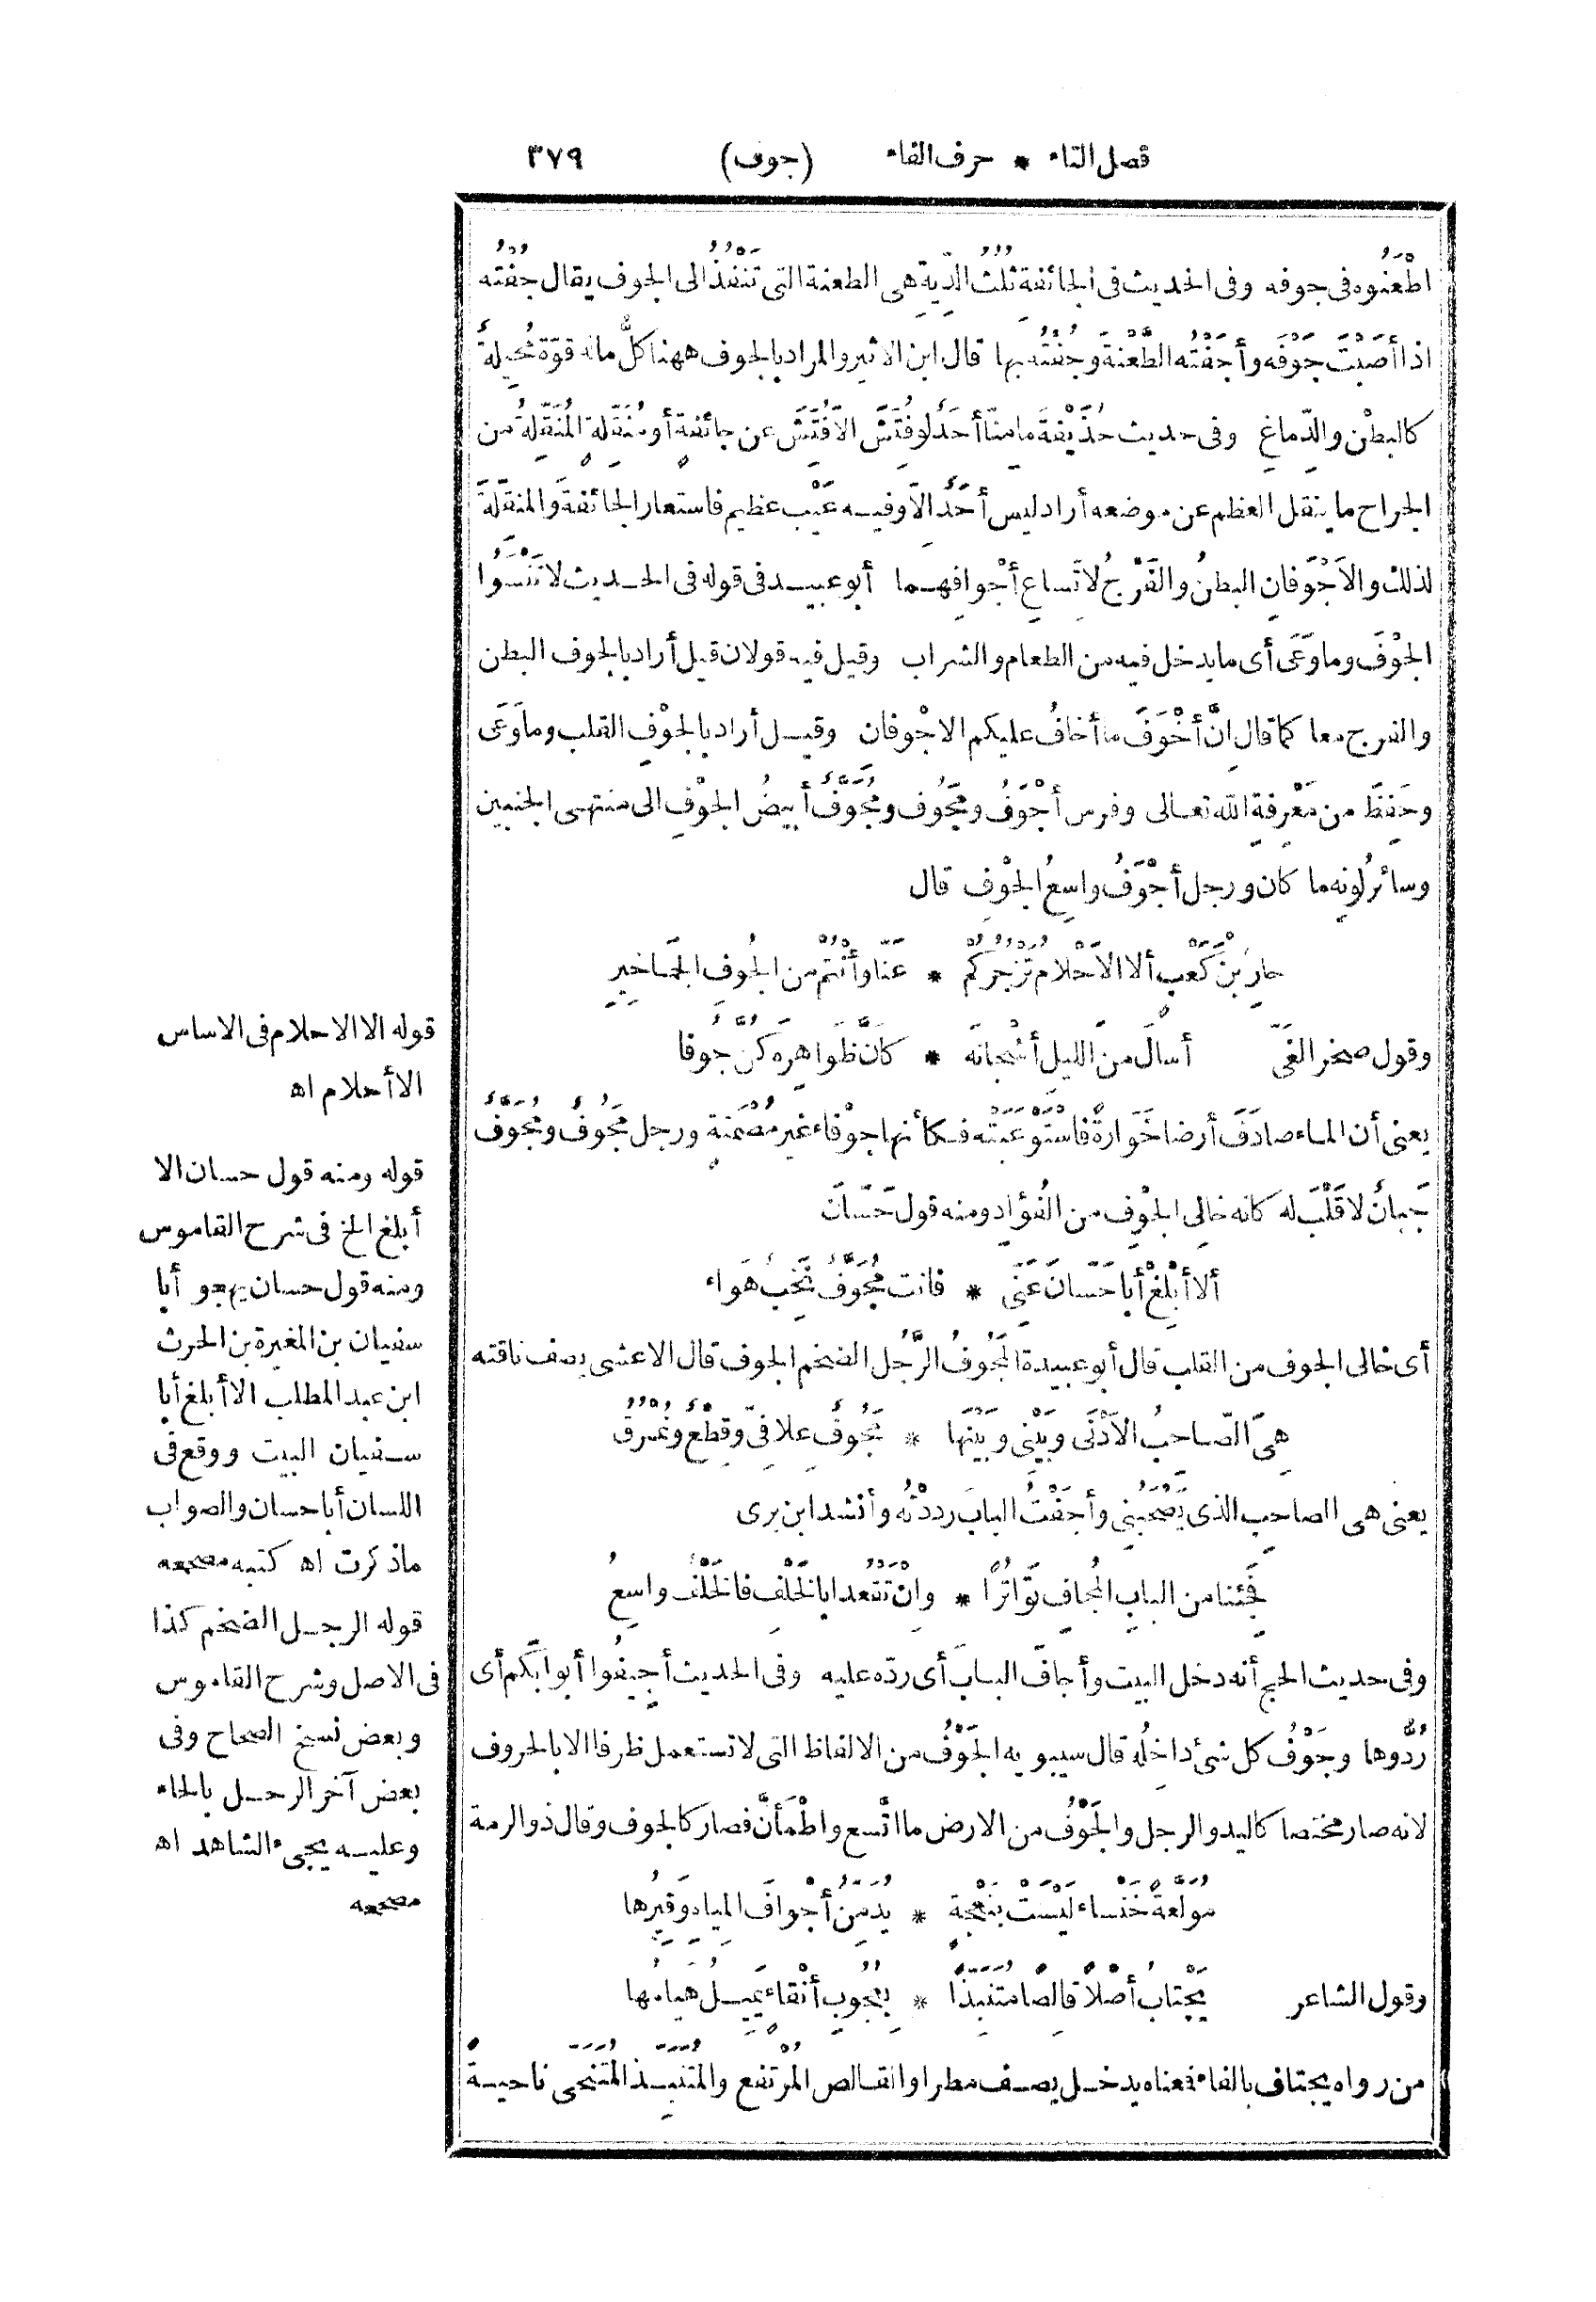 فصل التاء * حرف الفاء (جوف) ٣٧٩
اطْعَنُوه فى جوفه وفى الحديث فى الجائفة ثُلُثُ الدِّيةِ هى الطعنة التى تَنْفُذُ الى الجوف يقال جُفْتُه
اذا أَصَبْتَ جَوْفَه وأَجَفْتُه الطَّعْنةَ وجُفْتُه بها قال ابن الاثير والمراد بالجوف ههنا كلُّ ماله قوّة مُحِيلةٌ
كالبطْن والدِّماغِ وفى حديث حُذَيْفةَ ما مِنّا أَحَدٌ لو فُتِّشَ الاَّ فُتِّشَ عن جائفةٍ أو مُنَقِّلةٍ المُنَقِّلةُ من
الجراح ما ينقل العظم عن موضعه أراد ليس أَحَدٌ الاَّ وفيه عَيْب عظيم فاستعار الجائفةَ والمنقِّلةَ
لذلك والاَجْوَفانِ البطنُ والفَرْجُ لاتِّساعِ أَجْوافِهما أبو عبيد فى قوله فى الحديث لا تَنْسَوُا
الجوْفَ وما وَعَى أى ما يدخل فيه من الطعام والشراب وقيل فيه قولان قيل أراد بالجوف البطن
والفرج معا كما قال انَّ أَخْوَفَ ما أخافُ عليكم الاجْوفان وقيل أراد بالجوْفِ القلب وما وَعَى
وحَفِظَ من مَعْرِفةِ الله تعالى وفرس أَجْوَفُ ومَجُوف ومُجَوَّفٌ أبيضُ الجوْفِ الى منتهى الجنبين
وسائرُ لونِه ما كان ورجل أَجْوَفُ واسِعُ الجوْفِ قال
حارِ بْنَ كَعْبٍ ألا الاَحْلامُ تَزْجُرُكُمْ * عَنّا وأَنْتُمْ من الجُوفِ الجَماخِيرِ
وقول صخر الغَىّ أَسالَ من الليلِ أَشْجانَه * كأنَّ ظَواهِرَه كُنَّ جوفا
يعنى أن الماء صادَفَ أرضا خَوّارةً فاسْتَوْعَبَتْه فكأنها جوْفاء غير مُصْمَتةٍ ورجل مَجُوفٌ ومُجَوَّفٌ
جَبانٌ لا قَلْبَ له كانه خالى الجوْفِ من الفُؤاد ومنه قول حَسّانَ
ألا أَبْلِغْ أبا حَسّانَ عَنِّى * فانت مُجَوَّفٌ نَخِبٌ هَواء
أى خالى الجوف من القلب قال أبو عبيدة المَجُوفُ الرَّجُل الضخم الجوف قال الاعشى يصف ناقته
هِىَ الصّاحِبُ الاَدْنَى وبَيْنِى وبَيْنَها * مَجُوفٌ عِلافِىٌّ وقِطْعٌ ونُمْرُقُ
يعنى هى الصاحِب الذى يَصْحَبُنِى وأَجَفْتُ البابَ رددْتُه وأنشد ابن برى
فَجِئنا من البابِ المُجافِ تَواتُرًا * وانْ تَقْعُدا بالخَلْفِ فالخَلْفُ واسِعُ
وفى حديث الحج أنه دخل البيت وأجافَ البابَ أى ردّه عليه وفى الحديث أَجِيفُوا أبوابَكم أى
رُدُّوها وجَوْفُ كل شئ داخِلُه قال سيبويه الجَوْفُ من الالفاظ التى لا تستعمل ظرفا الا بالحروف
لانه صار مختصا كاليد والرجل والجَوْفُ من الارض ما اتَّسع واطْمَأَنَّ فصار كالجوف وقال ذو الرمة
مُولَّعةً خَنْساءَ لَيْسَتْ بنَعْجةٍ * يُدَمِّنُ أَجْوافَ المِياهِ وَقِيرُها
وقول الشاعر يَجْتابُ أَصْلاً قالِصًا مُتَنَبِّذًا * بعُجُوبِ أَنْقاءٍ يَمِيلُ هَيامُها
من رواه يجتاف بالفاء فمعناه يدخل يصف مطرا والقالص المُرْتفع والمُتَنَبِّذُ المُتَنَحِّى ناحيةً
قوله الا الاحلام فى الاساس
الا أحلام اه
قوله ومنه قول حسان الا
أبلغ الخ فى شرح القاموس
ومنه قول حسان يهجو أبا
سفيان بن المغيرة بن الحرث
ابن عبد المطلب الا أبلغ أبا
سفيان البيت ووقع فى
اللسان أبا حسان والصواب
ما ذكرت اه كتبه مصححه
قوله الرجل الضخم كذا
فى الاصل وشرح القاموس
وبعض نسخ الصحاح وفى
بعض آخر الرحل بالحاء
وعليه يجىء الشاهد اه
مصححه